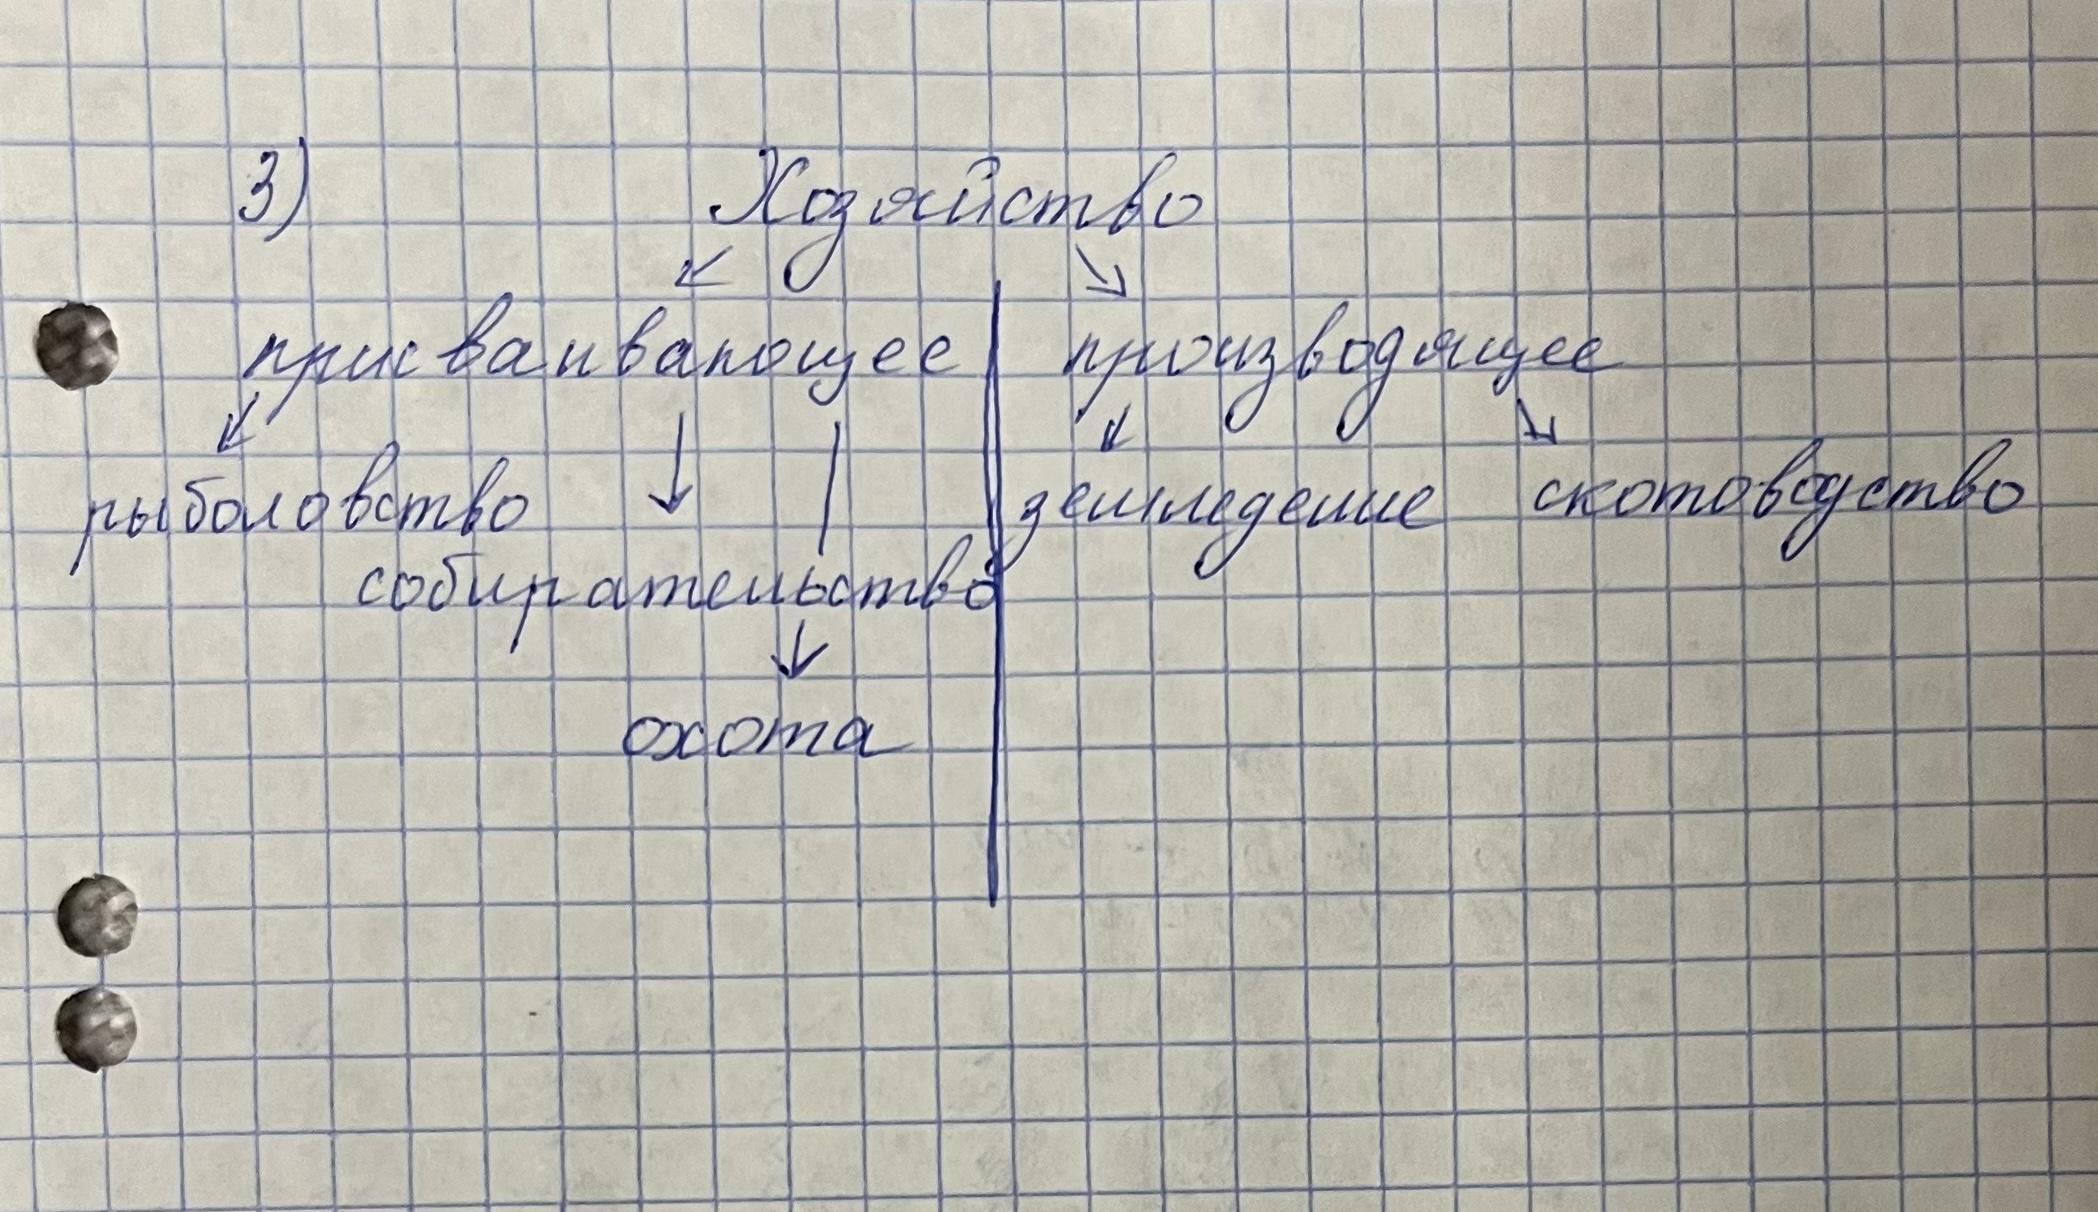 3) Хозяйство
присваивающее производящее
рыболовство земледелие скотоводство
собирательство
охота